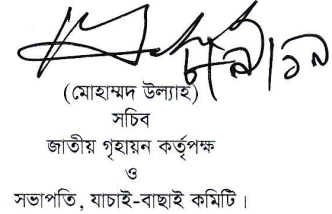 (মোহাম্মদ উল্যাহ)
সচিব
জাতীয় গৃহায়ন কর্তৃপক্ষ
ও
সভাপতি, যাচাই-বাছাই কমিটি ।